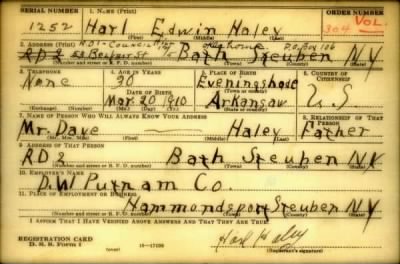 SERIAL NUMBER 1. NAME (Print) ORDER NUMBER
1252 Harl Edwin Haley 304 VOL.
(First) (Middle) (Last)
2. ADDRESS (Print)
P.O. Box 106
RD 2 Bath Steuben NY
(Number and street or R. F. D. number) (Town) (County) (State)
3. TELEPHONE 4. AGE IN YEARS 5. PLACE OF BIRTH 6. COUNTRY OF CITIZENSHIP
None 30 Eveningshade U S
DATE OF BIRTH (Town or county)
Mar. 20 1910 Arkansaw
(Exchange) (Number) (Mo.) (Day) (Yr.) (State or country)
7. NAME OF PERSON WHO WILL ALWAYS KNOW YOUR ADDRESS 8. RELATIONSHIP OF THAT PERSON
Mr. Dave Haley Father
(Mr., Mrs., Miss) (First) (Middle) (Last)
9. ADDRESS OF THAT PERSON
RD 2 Bath Steuben N.Y.
(Number and street or R. F. D. number) (Town) (County) (State)
10. EMPLOYER'S NAME
D. W Putnam Co.
11. PLACE OF EMPLOYMENT OR BUSINESS
Hammondsport Steuben NY
(Number and street or R. F. D. number) (Town) (County) (State)
I AFFIRM THAT I HAVE VERIFIED ABOVE ANSWERS AND THAT THEY ARE TRUE.
REGISTRATION CARD
D. S. S. FORM 1 Harl Haley
(Registrant's signature)